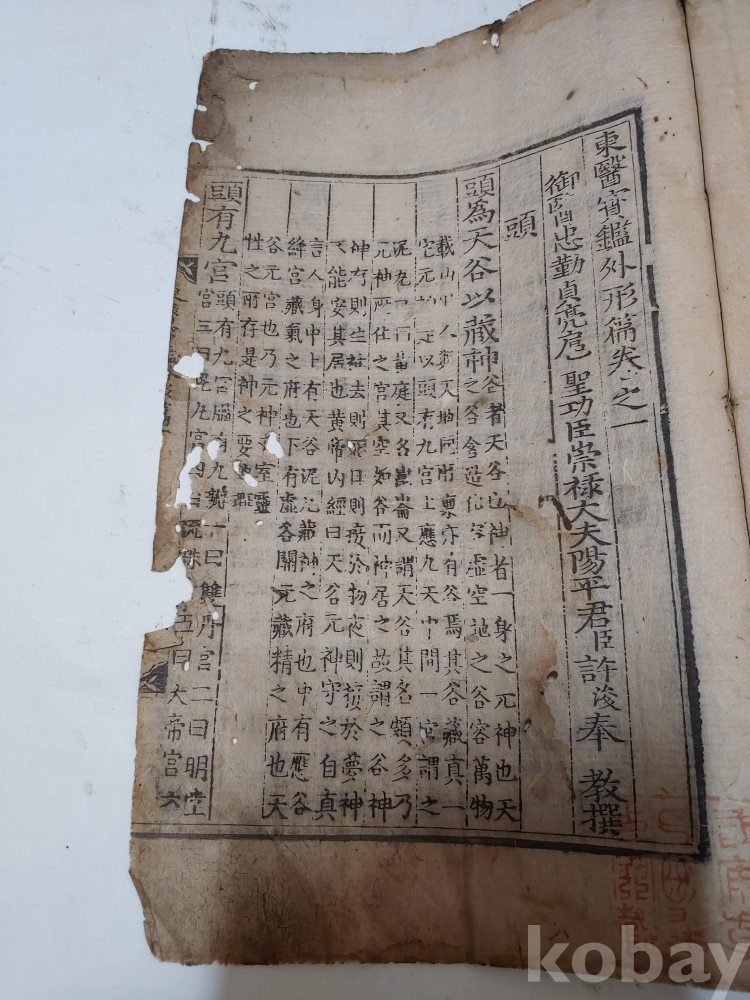 東醫寶鑑外形篇卷之一
御醫忠勤貞亮扈 聖功臣崇祿大夫陽平君臣許浚奉 教撰
頭
頭為天谷以藏神 谷者天谷也神者一身之元神也天
之谷含造化容虛空地之谷容萬物
載山川人與天地同所稟亦有谷焉其谷藏真一
宅元神是以頭有九宮上應九天中間一宮謂之
泥丸又曰黃庭又名崑崙又謂天谷其名頗多乃
元神所住之宮其空如谷而神居之故謂之谷神
神存則生神去則死日則接於物夜則接於夢神
不能安其居也黃帝內經曰天谷元神守之自真
言人身中上有天谷泥丸藏神之府也中有應谷
絳宮藏氣之府也下有虛谷關元藏精之府也天
谷元宮也乃元神之室靈
性之所存是神之要
頭有九宮 頭有九宮腦有九瓣一曰雙丹宮二曰明堂
宮三曰泥丸宮四曰流珠 五曰大帝宮六
kobay